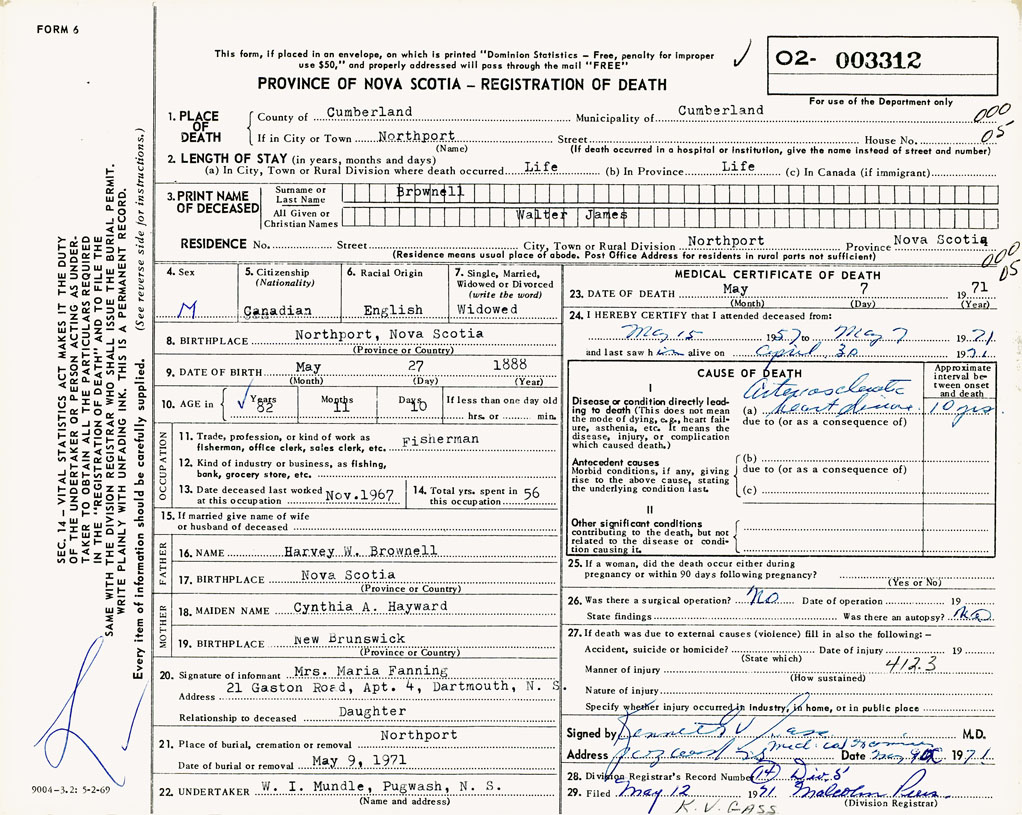 FORM 6
This form, if placed in an envelope, on which is printed "Dominion Statistics – Free, penalty for improper
use $50," and properly addressed will pass through the mail "FREE"
O2- 003312
For use of the Department only
PROVINCE OF NOVA SCOTIA – REGISTRATION OF DEATH
1. PLACE OF DEATH
County of Cumberland Municipality of Cumberland 000
If in City or Town Northport Street House No. 05
(Name) (If death occurred in a hospital or institution, give the name instead of street and number)
2. LENGTH OF STAY (in years, months and days)
(a) In City, Town or Rural Division where death occurred Life (b) In Province Life (c) In Canada (if immigrant)
3. PRINT NAME OF DECEASED
Surname or Last Name Brownell
All Given or Christian Names Walter James
RESIDENCE No. Street City, Town or Rural Division Northport Province Nova Scotia
(Residence means usual place of abode. Post Office Address for residents in rural parts not sufficient)
000
05
4. Sex
M
5. Citizenship
(Nationality)
Canadian
6. Racial Origin
English
7. Single, Married,
Widowed or Divorced
(write the word)
Widowed
8. BIRTHPLACE Northport, Nova Scotia
(Province or Country)
9. DATE OF BIRTH May 27 1888
(Month) (Day) (Year)
10. AGE in Years 82 Months 11 Days 10 If less than one day old
hrs. or min.
OCCUPATION
11. Trade, profession, or kind of work as
fisherman, office clerk, sales clerk, etc. Fisherman
12. Kind of industry or business, as fishing,
bank, grocery store, etc.
13. Date deceased last worked
at this occupation Nov.1967
14. Total yrs. spent in
this occupation 56
15. If married give name of wife
or husband of deceased
FATHER
16. NAME Harvey W. Brownell
17. BIRTHPLACE Nova Scotia
(Province or Country)
MOTHER
18. MAIDEN NAME Cynthia A. Hayward
19. BIRTHPLACE New Brunswick
(Province or Country)
20. Signature of informant Mrs. Maria Fanning
Address 21 Gaston Road, Apt. 4, Dartmouth, N. S.
Relationship to deceased Daughter
21. Place of burial, cremation or removal Northport
Date of burial or removal May 9, 1971
22. UNDERTAKER W. I. Mundle, Pugwash, N. S.
(Name and address)
MEDICAL CERTIFICATE OF DEATH
23. DATE OF DEATH May 7 1971
(Month) (Day) (Year)
24. I HEREBY CERTIFY that I attended deceased from:
May 15 1957 to May 7 1971
and last saw him alive on April 30 1971
CAUSE OF DEATH
Approximate interval between onset and death
I
Disease or condition directly leading to death (This does not mean
the mode of dying, e.g., heart failure, asthenia, etc. It means the
disease, injury, or complication
which caused death.)
(a) Arteriosclerotic heart disease 10 yrs
due to (or as a consequence of)
Antecedent causes
Morbid conditions, if any, giving
rise to the above cause, stating
the underlying condition last.
(b)
due to (or as a consequence of)
(c)
II
Other significant conditions
contributing to the death, but not
related to the disease or condition causing it.
25. If a woman, did the death occur either during
pregnancy or within 90 days following pregnancy?
(Yes or No)
26. Was there a surgical operation? No Date of operation 19
State findings Was there an autopsy? No
27. If death was due to external causes (violence) fill in also the following: –
Accident, suicide or homicide? Date of injury 19
(State which)
412.3
Manner of injury
(How sustained)
Nature of injury
Specify whether injury occurred in industry, in home, or in public place
Signed by Kenneth V Gass M.D.
Address Date May 1971
28. Division Registrar's Record Number 14 Div. 5
29. Filed May 12 1971 Malcolm
(Division Registrar)
K.V. GASS
SEC. 14 – VITAL STATISTICS ACT MAKES IT THE DUTY
OF THE UNDERTAKER OR PERSON ACTING AS UNDERTAKER TO OBTAIN ALL THE PARTICULARS REQUIRED
IN THE "REGISTRATION OF DEATH" AND TO FILE THE
SAME WITH THE DIVISION REGISTRAR WHO SHALL ISSUE THE BURIAL PERMIT.
WRITE PLAINLY WITH UNFADING INK. THIS IS A PERMANENT RECORD.
Every item of information should be carefully supplied. (See reverse side for instructions.)
9004-3.2: 5-2-69